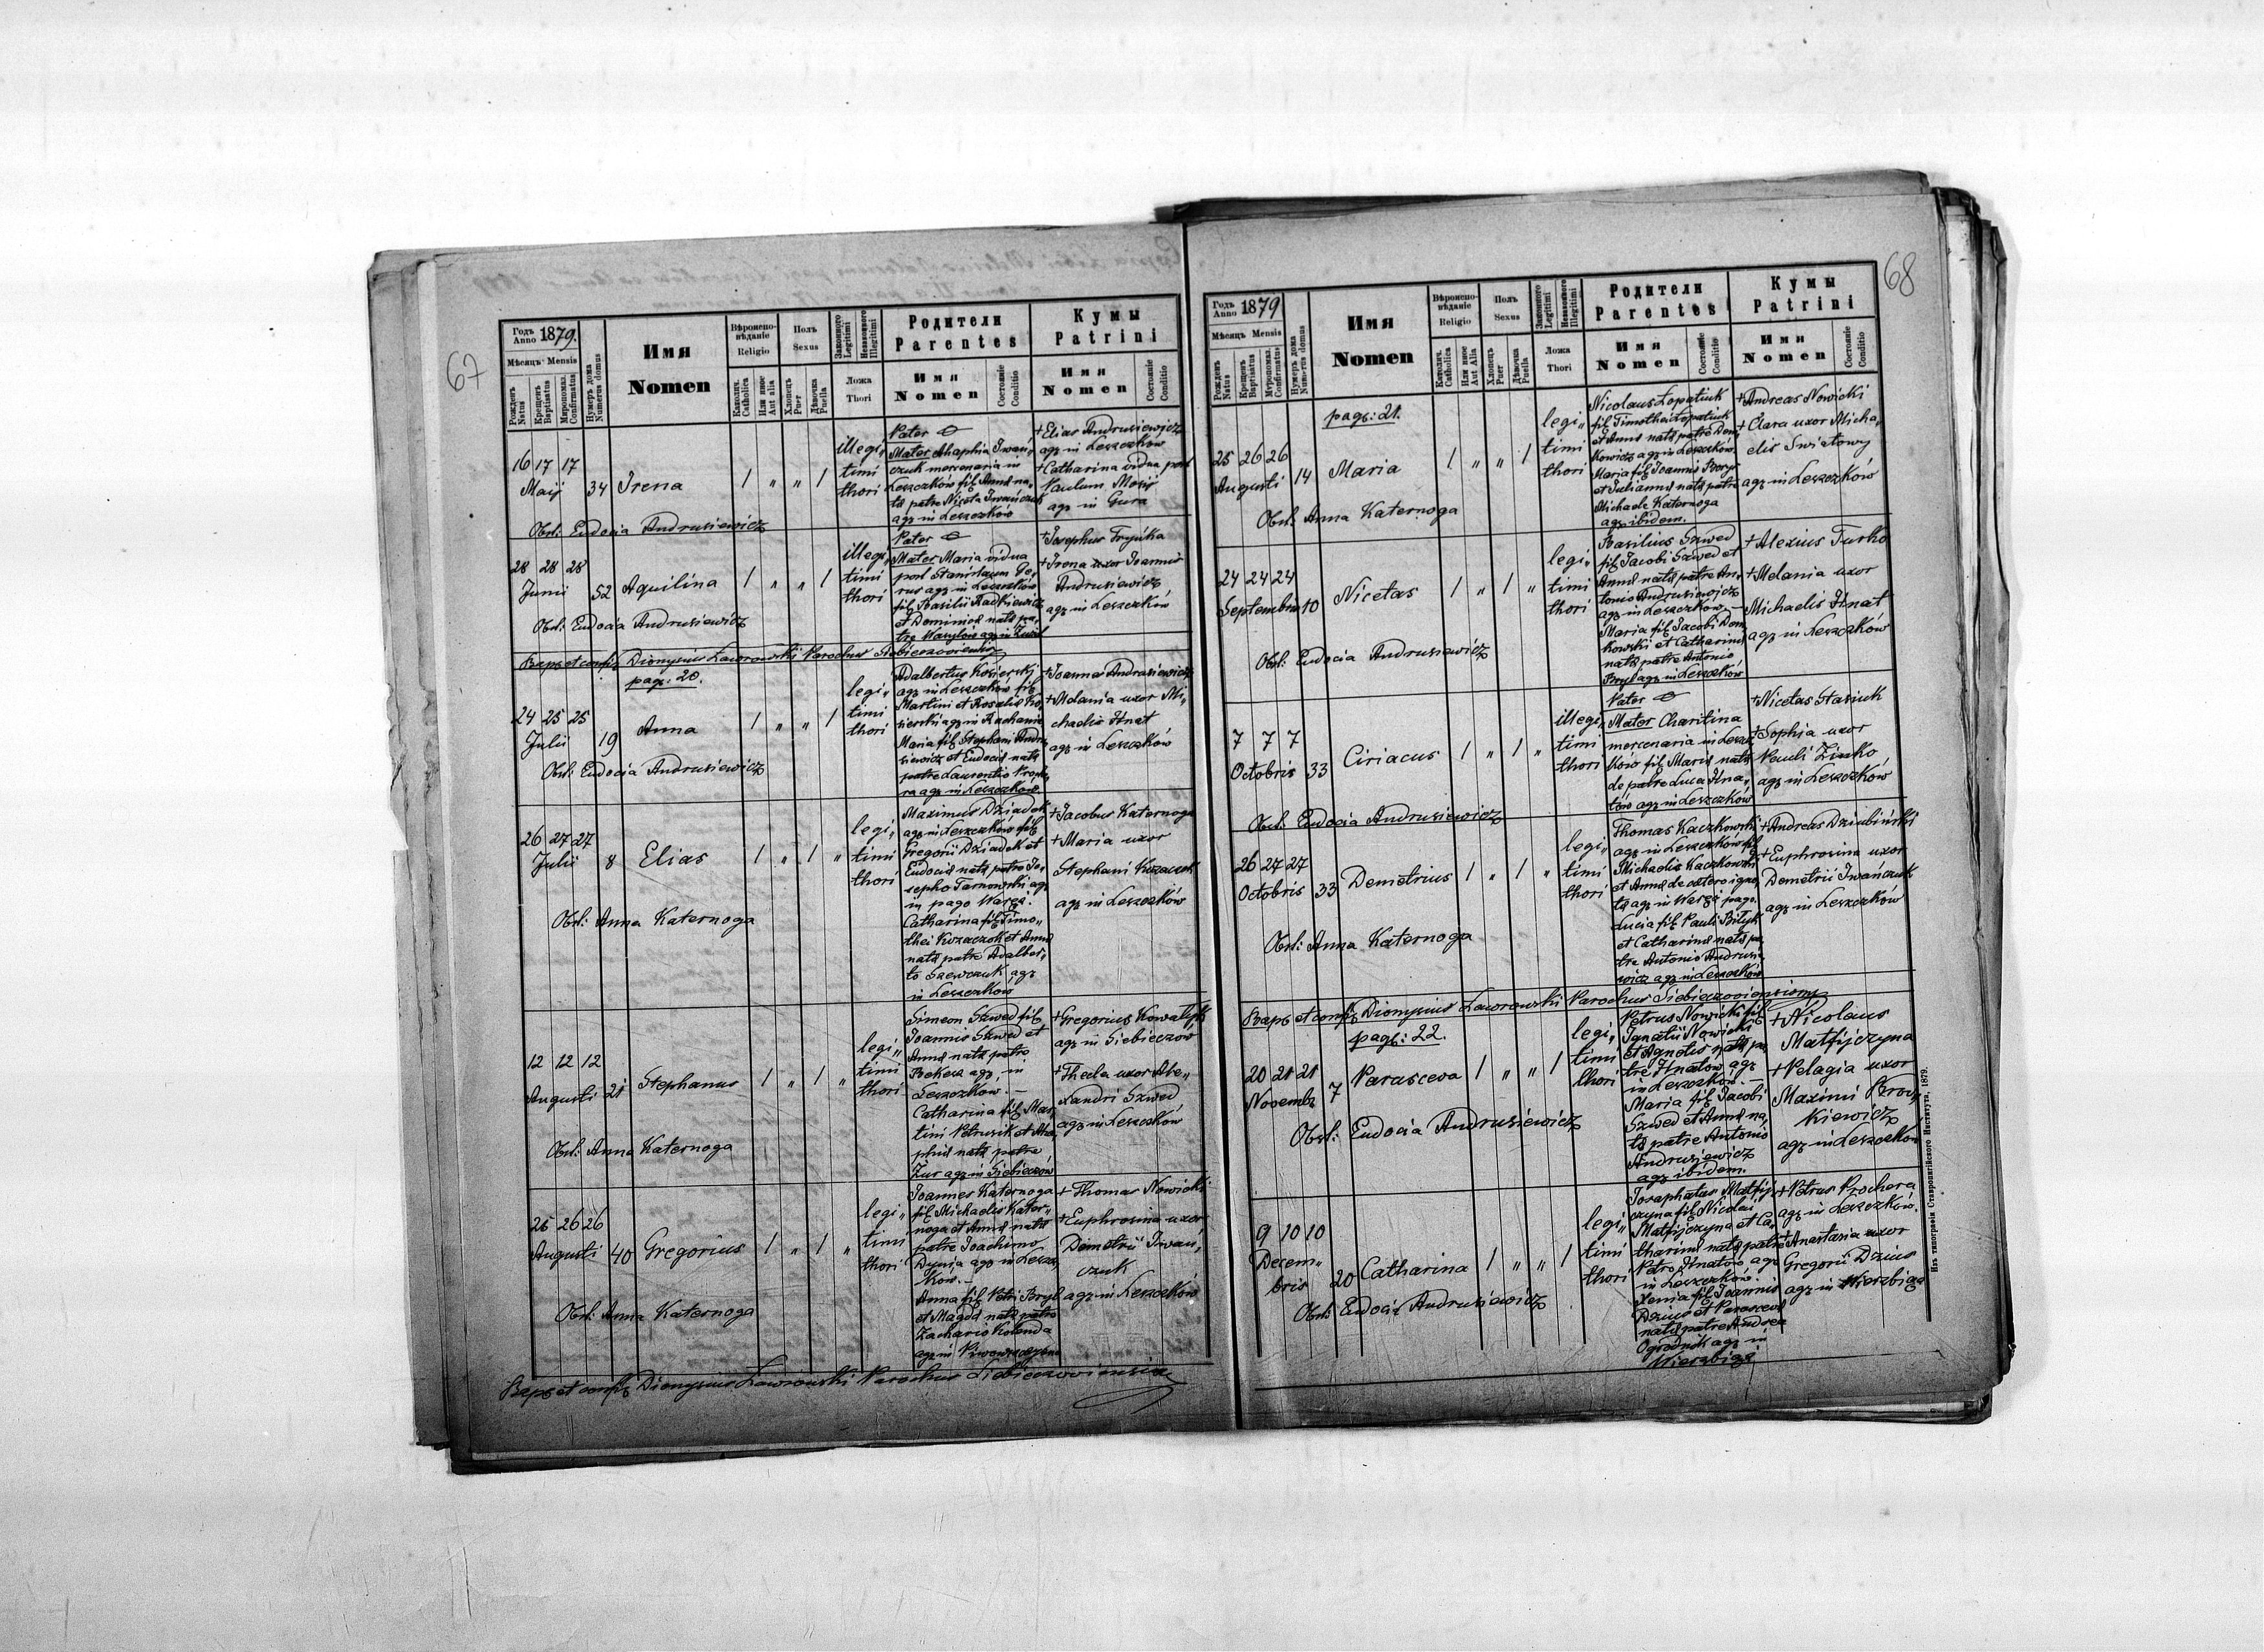 67
Годъ Anno 1879.
Мѣсяцъ Mensis
Рожденъ Natus
Крещенъ Baptisatus
Миропомаз. Confirmatus
Нумеръ дома Numerus domus
Имя
Nomen
Вѣроисповѣданіе
Religio
Католич. Catholica
Или иное Aut alia
Полъ
Sexus
Хлопецъ Puer
Дѣвочка Puella
Законного Legitimi
Незаконного Illegitimi
Ложа
Thori
Родители
Parentes
Имя
Nomen
Состояніе Conditio
Кумы
Patrini
Имя
Nomen
Состояніе Conditio
16 17 17
Maij 34 Irena 1 " " 1
illegi„
timi
thori
Pater
Mater Ahaphia Iwań„
czuk mercenaria in
Leszczków fil Annæ na„
tæ patre Niceta Iwańczuk
agr in Leszczków
+Elias Andrusiewicz
agr in Leszczków
+Catharina vidua post
Paulum Mosij
agr in Gura
Obst: Eudocia Andrusiewicz
28 28 28
Junii 52 Aquilina 1 " " 1
illegi„
timi
thori
Pater
Mater Maria vidua
post Stanislaum
agr in Leszczków
fil Basilii Radkiewicz
et Dominicæ natæ pa„
tre Wasylów agr in
+Josephus
+Irena uxor Joannis
Andrusiewicz
agr in Leszczków
Obst: Eudocia Andrusiewicz
Bapt et confir Dionysius Ławrowski Parochus Siebieczoviensis
pag: 20.
24 25 25
Julii 19 Anna 1 " " 1
legi„
timi
thori
Adalbertus Kosierski
agr in Leszczków fil
Martini et Rosaliæ Ko„
sierski agr in Rachanie
Maria fil Stephani Andru
siewicz et Eudociæ natæ
patre Laurentio
agr in Leszczków.
+Joannes Andrusiewicz
+Melania uxor Mi„
chaelis Hnat
agr in Leszczków
Obst: Eudocia Andrusiewicz
26 27 27
Julii 8 Elias 1 " 1 "
legi„
timi
thori
Maximus Dziadek
agr in Leszczków fil
Gregorii Dziadek et
Eudociæ natæ patre Jo„
sepho Tarnowski agr
in pago Waręż.
Catharina fil Timo„
thei Kozaczok et Annæ
natæ patre Adalber„
to Szewczuk agr
in Leszczków
+Jacobus Katernoga
+Maria uxor
Stephani Kozaczok
agr in Leszczków
Obst: Anna Katernoga
12 12 12
Augusti 21 Stephanus 1 " 1 "
legi„
timi
thori
Simeon Szwed fil
Joannis Szwed et
Annæ natæ patre
agr in
Leszczków.—
Catharina fil Mar„
tini Petrusik et
natæ patre
Żur agr in Siebieczów
+Gregorius Kowalyk
agr in Siebieczów
+Thecla uxor Ale„
xandri Szwed
agr in Leszczków
Obst: Anna Katernoga
25 26 26
Augusti 40 Gregorius 1 " 1 "
legi„
timi
thori
Joannes Katernoga
fil Michaelis Kater„
noga et Annæ natæ
patre Joachimo
agr in Leszcz„
ków.—
Anna fil Petri Bryl
et Magdæ natæ patre
Zacharia Kolenda
agr in
+Thomas Nowicki
+Euphrosina uxor
Demetrii Iwań„
czuk
agr in Leszczków
Obst: Anna Katernoga
Bapt et confir Dionysius Ławrowski Parochus Siebieczoviensis
68
Годъ Anno 1879
Мѣсяцъ Mensis
Рожденъ Natus
Крещенъ Baptisatus
Миропомаз. Confirmatus
Нумеръ дома Numerus domus
Имя
Nomen
Вѣроисповѣданіе
Religio
Католич. Catholica
Или иное Aut Alia
Полъ
Sexus
Хлопецъ Puer
Дѣвочка Puella
Законного Legitimi
Незаконного Illegitimi
Ложа
Thori
Родители
Parentes
Имя
Nomen
Состояніе Conditio
Кумы
Patrini
Имя
Nomen
Состояніе Conditio
pag: 21.
25 26 26
Augusti 14 Maria 1 " " 1
legi„
timi
thori
Nicolaus Łopatiuk
fil Timothei Łopatiuk
et Annæ natæ patre Dem„
kowicz agr in Leszczków.
Maria fil Joannis Borys
et Juliannæ natæ patre
Michaele Katernoga
agr ibidem.
+Andreas Nowicki
+Clara uxor Micha„
elis Swietowy
agr in Leszczków
Obst: Anna Katernoga
24 24 24
Septembris 10 Nicetas 1 " 1 "
legi„
timi
thori
Basilius Szwed
fil Jacobi Szwed et
Annæ natæ patre An„
tonio Andrusiewicz
agr in Leszczków.—
Maria fil Jacobi Dem„
kowski et Catharinæ
natæ patre Antonio
Bryl agr in Leszczków
+Alexius Turko
+Melania uxor
Michaelis Hnat
agr in Leszczków
Obst: Eudocia Andrusiewicz
7 7 7
Octobris 33 Ciriacus 1 " 1 "
illegi„
timi
thori
Pater
Mater Charitina
mercenaria in Leszcz„
ków fil Mariæ natæ
de patre Luca Hna„
tów agr in Leszczków
+Nicetas Stasiuk
+Sophia uxor
Pauli Zinko
agr in Leszczków
Obst: Eudocia Andrusiewicz
26 27 27
Octobris 33 Demetrius 1 " 1 "
legi„
timi
thori
Thomas Kaczkowski
agr in Leszczków fil
Michaelis Kaczkowski
et Annæ de cætero igno„
tæ agr in Waręż pago.
Lucia fil Pauli Biłyk
et Catharinæ natæ pa„
tre Antonio Andrusie
wicz agr in Leszczków
+Andreas Dziubiński
+Euphrosina uxor
Demetrii Iwańczuk
agr in Leszczków
Obst: Anna Katernoga
Bapt et confir Dionysius Ławrowski Parochus Siebieczoviensis
pag: 22.
20 21 21
Novembr 7 Parasceva 1 " " 1
legi„
timi
thori
Petrus Nowicki fil
Ignatii Nowicki
et Agnetis natæ pa„
tre Hnatow agr
in Leszczków.—
Maria fil Jacobi
Szwed et Annæ na„
tæ patre Antonio
Andrusiewicz
agr ibidem.
+Nicolaus
Matfijczyna
+Pelagia uxor
Maximi
kiewicz
agr in Leszczków
Obst: Eudocia Andrusiewicz
9 10 10
Decem„
bris 20 Catharina 1 " " 1
legi„
timi
thori
Josaphatus Matfij„
czyna fil Nicolai
Matfijczyna et Ca„
tharinæ natæ patre
Petro Hnatów agr
in Leszczków.
Xenia fil Joannis
Dzius et Parascevæ
natæ patre Andrea
Ogrodnik agr in
Wierzbiąż
+Petrus Prochera
agr in Leszczków.
+Anastasia uxor
Gregorii Dzius
agr in Wierzbiąż
Obst: Eudocia Andrusiewicz
Изъ типографіи Ставропигійского Института, 1879.